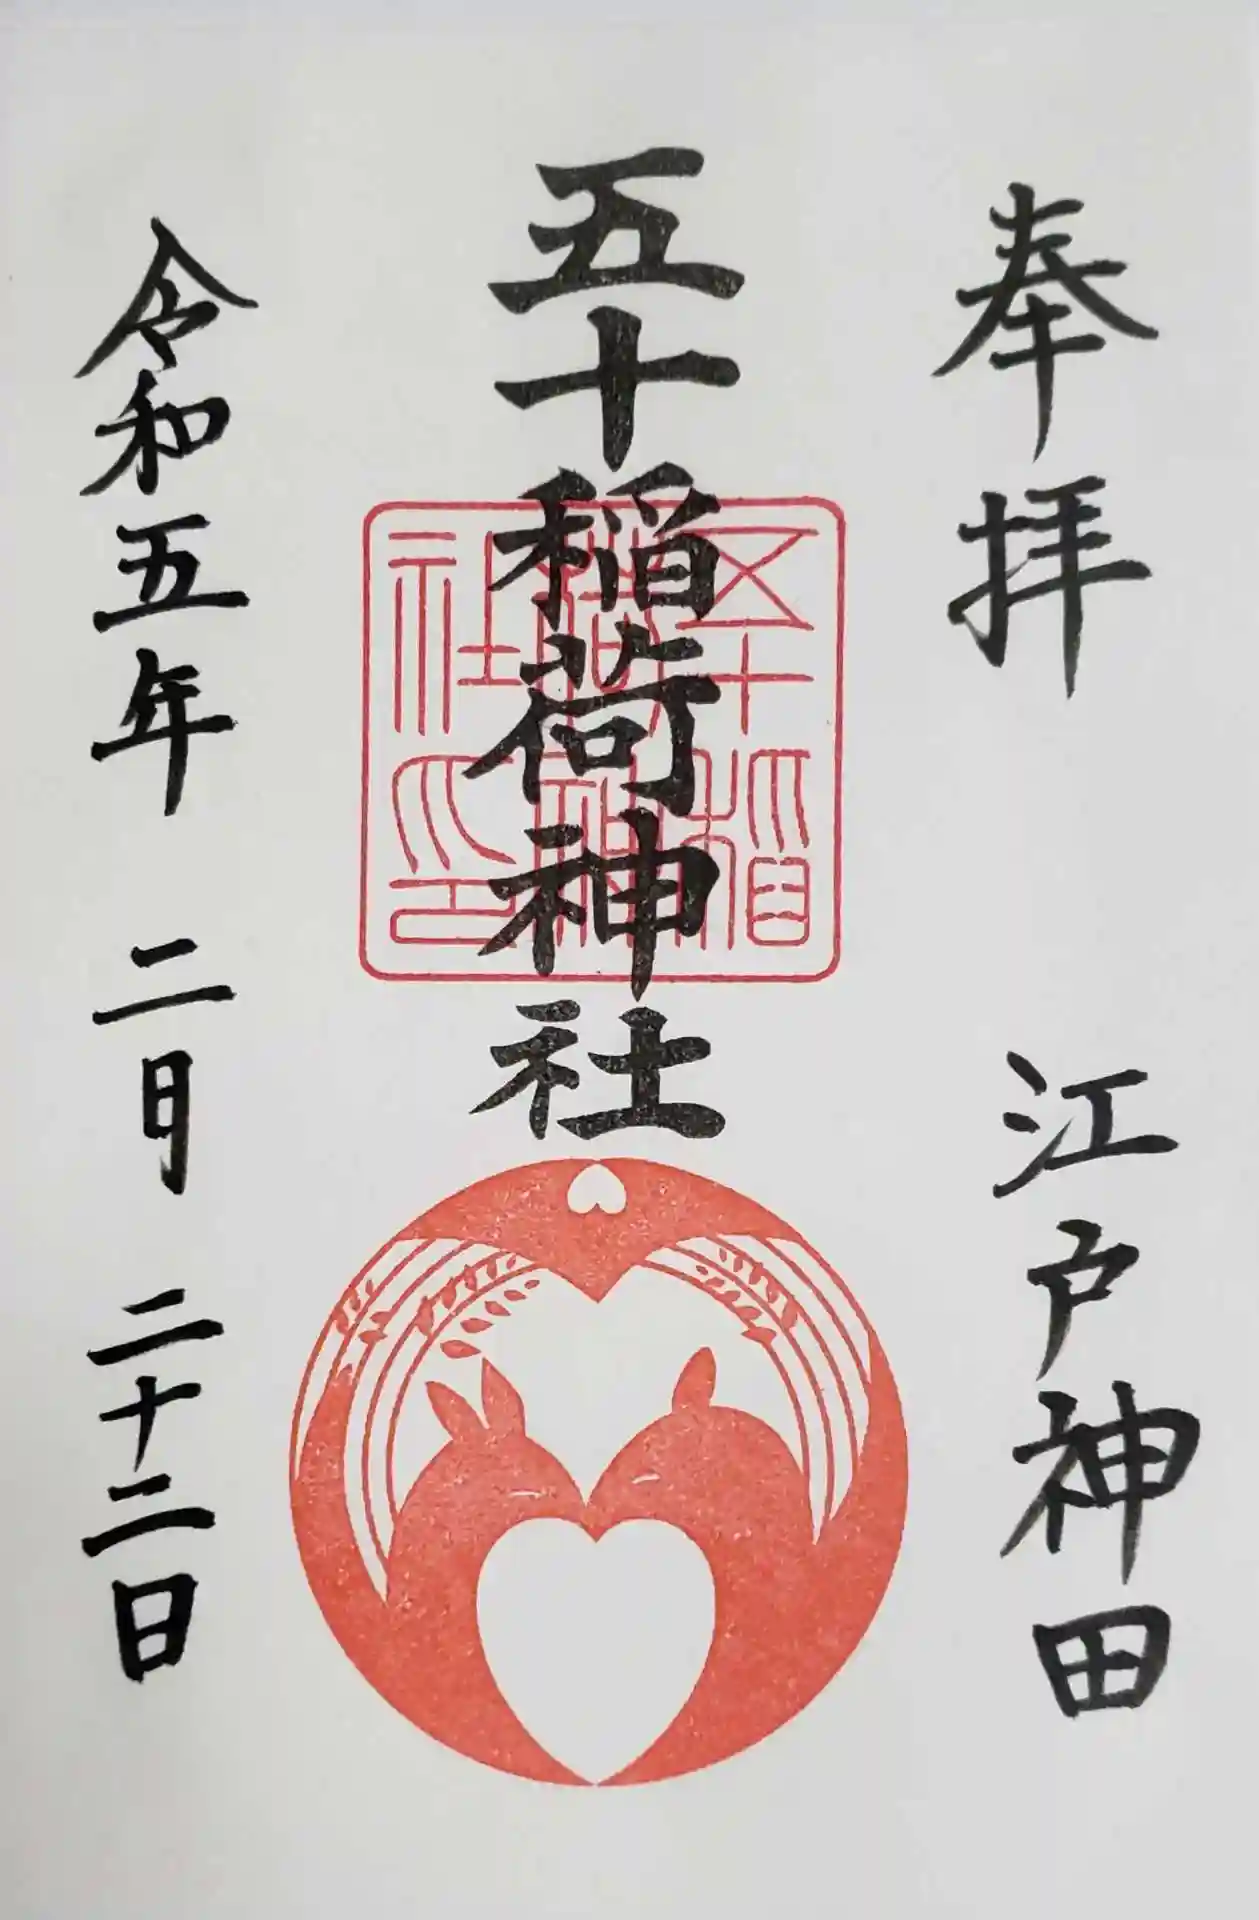 奉拝
江戸神田
五十稲荷神社
五十稲荷神社印
令和五年 二月 二十二日